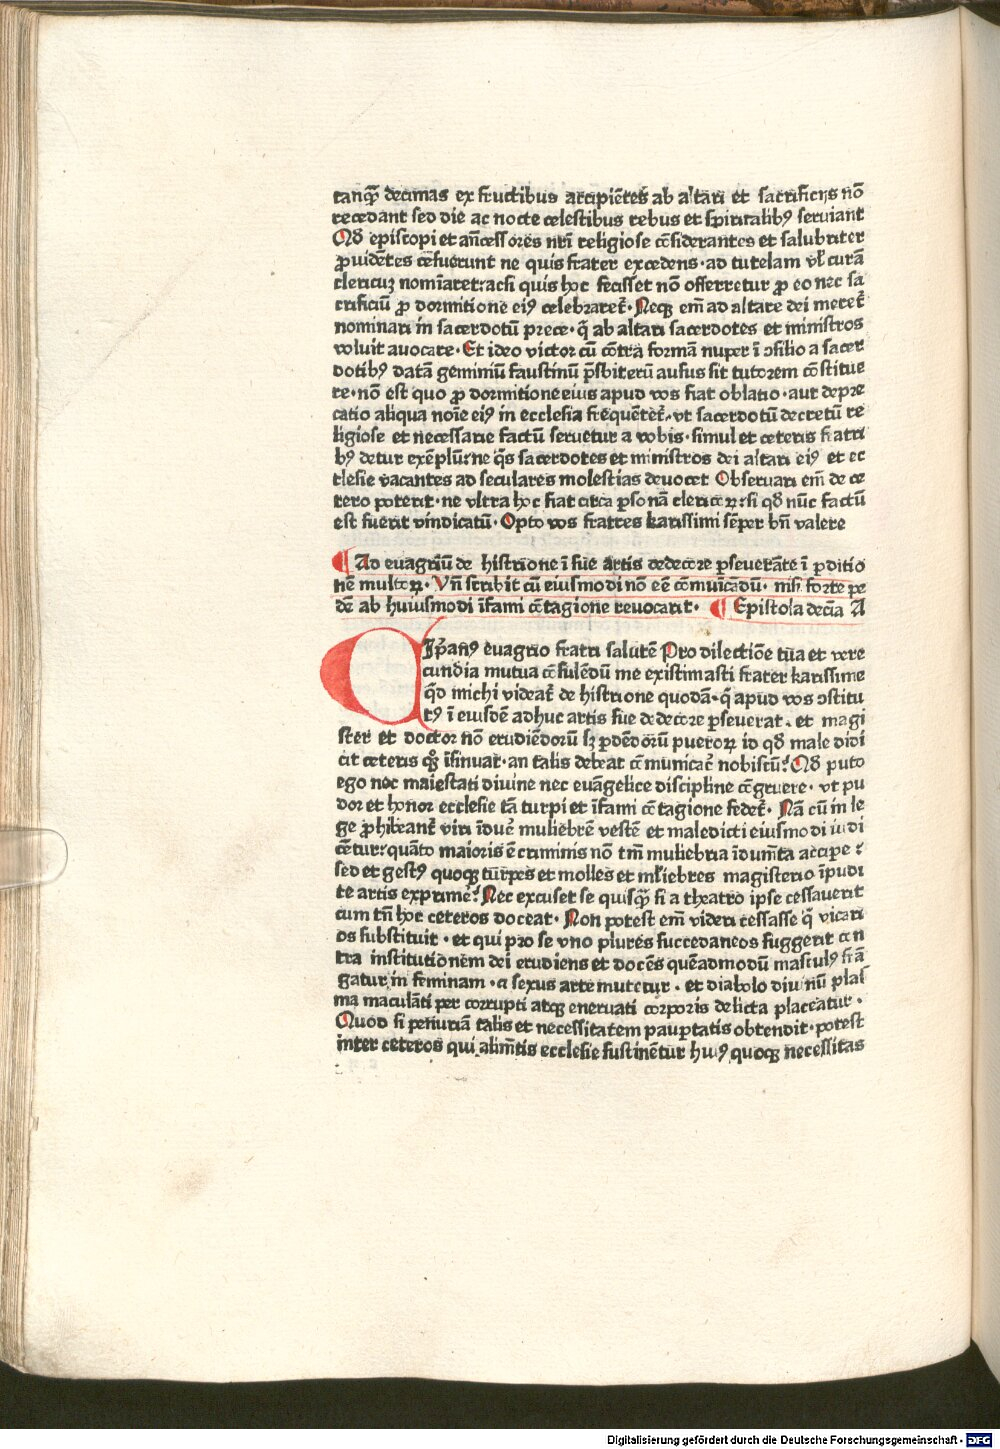 tanꝙ̃ decimas ex fructibus accipiētes ab altari et sacrificijs nō
recedant sed die ac nocte celestibus rebus et spiritalibꝰ seruiant
Qd̕ episcopi et an̄cessores nr̄i religiose cōsiderantes et salubriter
ꝓuidētes cēsuerunt ne quis frater excedens·ad tutelam vl̕ curā
clericuꝫ nomīaret:ac si quis hoc fecisset nō offerretur ꝓ eo nec sa
crificiū ꝓ dormitione eiꝰ celebraret̕·Neqꝫ em̄ ad altare dei meret̕
nominari in sacerdotū prece·q̄ ab altari sacerdotes et ministros
voluit auocare·Et ideo victor cū cōtra formā nuper ī ↄsilio a sacer
dotibꝰ datā geminiū faustinū p̄sbiterū ausus sit tutorem cōstitue
re·nō est quo ꝓ dormitione eius apud vos fiat oblatio·aut depre
catio aliqua noīe eiꝰ in ecclesia frequētet̕·vt sacerdotū decretū re
ligiose et necessarie factū seruetur a vobis·simul et ceteris fratri
bꝰ detur exēplū:ne q̄s sacerdotes et ministros dei altari eiꝰ et ec
clesie vacantes ad seculares molestias deuocet Obseruari em̄ de ce
tero poterit·ne vltra hoc fiat circa ꝑsonā clericoꝝ:si qd̕ nūc factū
est fuerit vindicatū·Opto vos fratres karissimi sēper bn̄ valere
¶ Ad euagriū de histrione ī sue artis dedecore ꝑseuerāte ī ꝑditio
nē multoꝝ·Vn̄ scribit cū eiusmodi nō eē cōmuīcādū·nisi forte pe
dē ab huiusmodi īfami cōtagione reuocarit· ¶ Epistola decīa A
Cipͥanꝰ euagrio fratri salutē Pro dilectiōe tūa et vere
cundia mutua cōsulēdū me existimasti frater karissime
qd̕ michi videat̕ de histrione quodā·q̄ apud vos ↄstitu
tꝰ ī eiusdē adhuc artis sue dedecore ꝑseuerat·et magi
ster et doctor nō erudiēdorū sꝫ ꝑdēdorū pueroꝝ id qd̕ male didi
cit ceteris qꝫ īsinuat·an talis debeat cōmunicar̕ nobiscū? Qd̕ puto
ego nec maiestati diuine nec euāgelice discipline cōgruere·vt pu
dor et honor ecclesie tā turpi et īfami cōtagione fedet̕· Nā cū in le
ge ꝓhibeant̕ viri īduer̕ muliebrē vestē et maledicti eiusmodi iudi
cētur:quāto maioris ē criminis nō tm̄ muliebria īdumēta accipe :
sed et gestꝰ quoqꝫ turpes et molles et ml̕iebres magisterio īpudi
te artis exprimer̕? Nec excuset se quisꝙ̃ si a theatro ipse cessauerit
cum tn̄ hoc ceteros doceat· Non potest em̄ videri cessasse q̄ vicari
os substituit·et qui pro se vno plures succedaneos suggerit con
tra institutionem dei erudiens et docēs quēadmodū masculꝰ frā
gatur in feminam·a sexus arte mutetur·et diabolo diuinū plas
ma maculāti per corrupti atqꝫ eneruati corporis delicta placeatur·
Quod si penuriam talis et necessitatem pauꝑtatis obtendit·potest
inter ceteros qui alimētis ecclesie sustinētur huiꝰ quoqꝫ necessitas
Digitalisierung gefördert durch die Deutsche Forschungsgemeinschaft - DFG